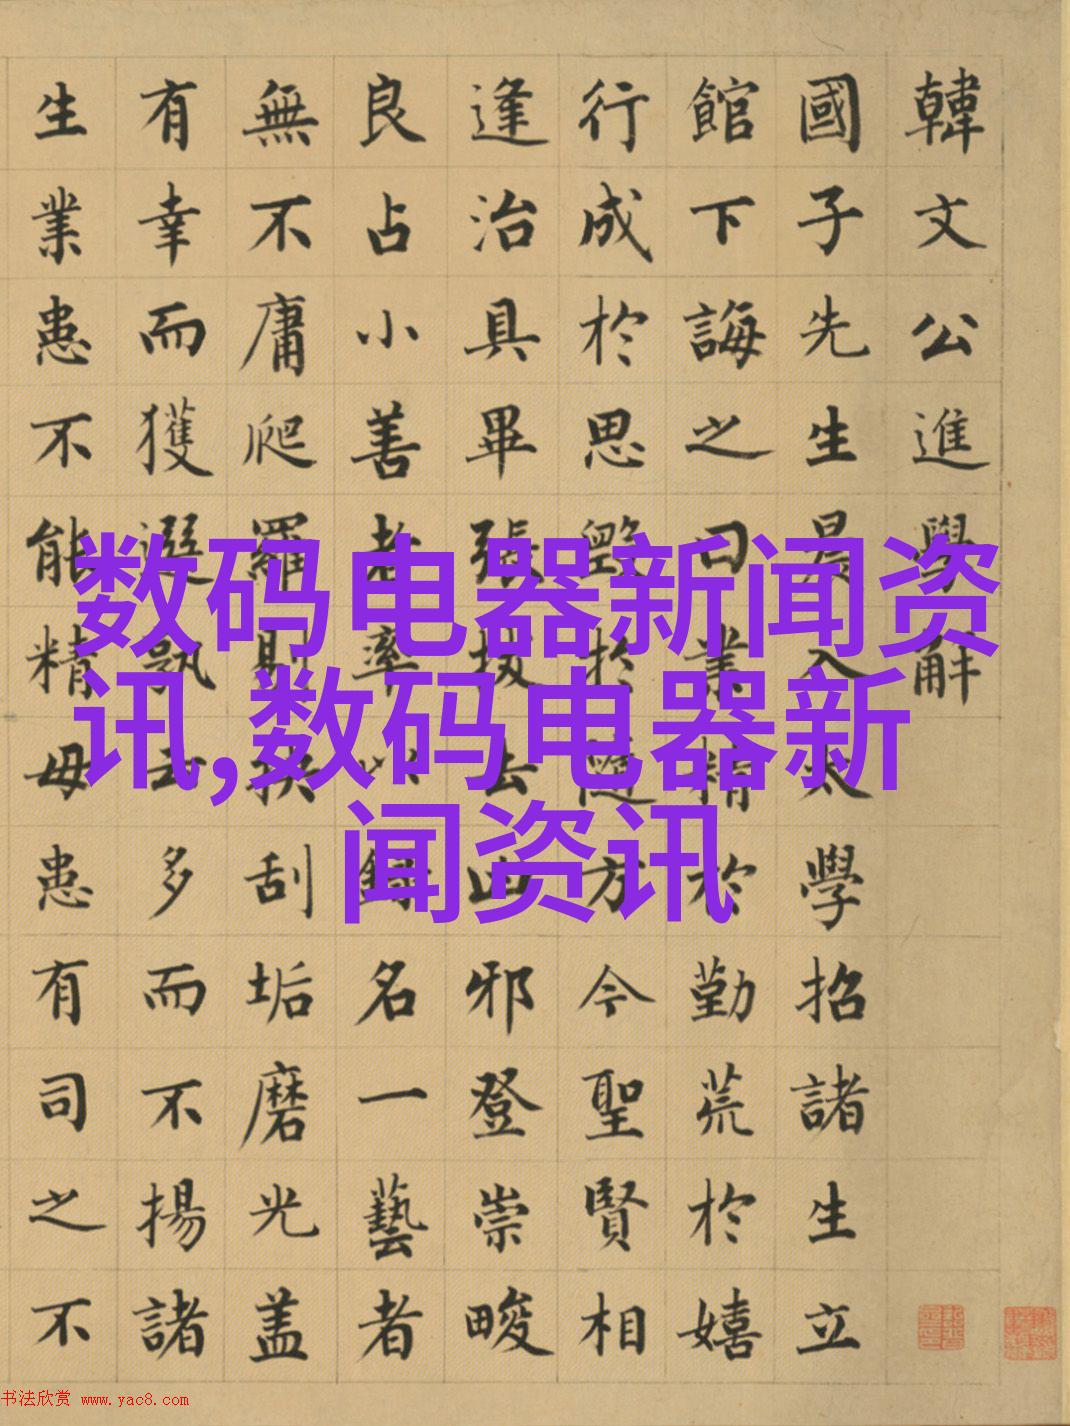 韓文公進學解
國子先生晨入太學招諸生立
館下誨之曰業精於勤荒於嬉
行成於思毀於隨方今聖賢相
逢治具畢張拔去凶邪登崇畯
良占小善者率以錄名一藝者
無不庸爬羅剔抉刮垢磨光盖
有幸而獲選孰云多而不揚諸
生業患不能精毋患有司之不
数码电器新闻资
讯,数码电器新
闻资讯
书法欣赏 www.yac8.com